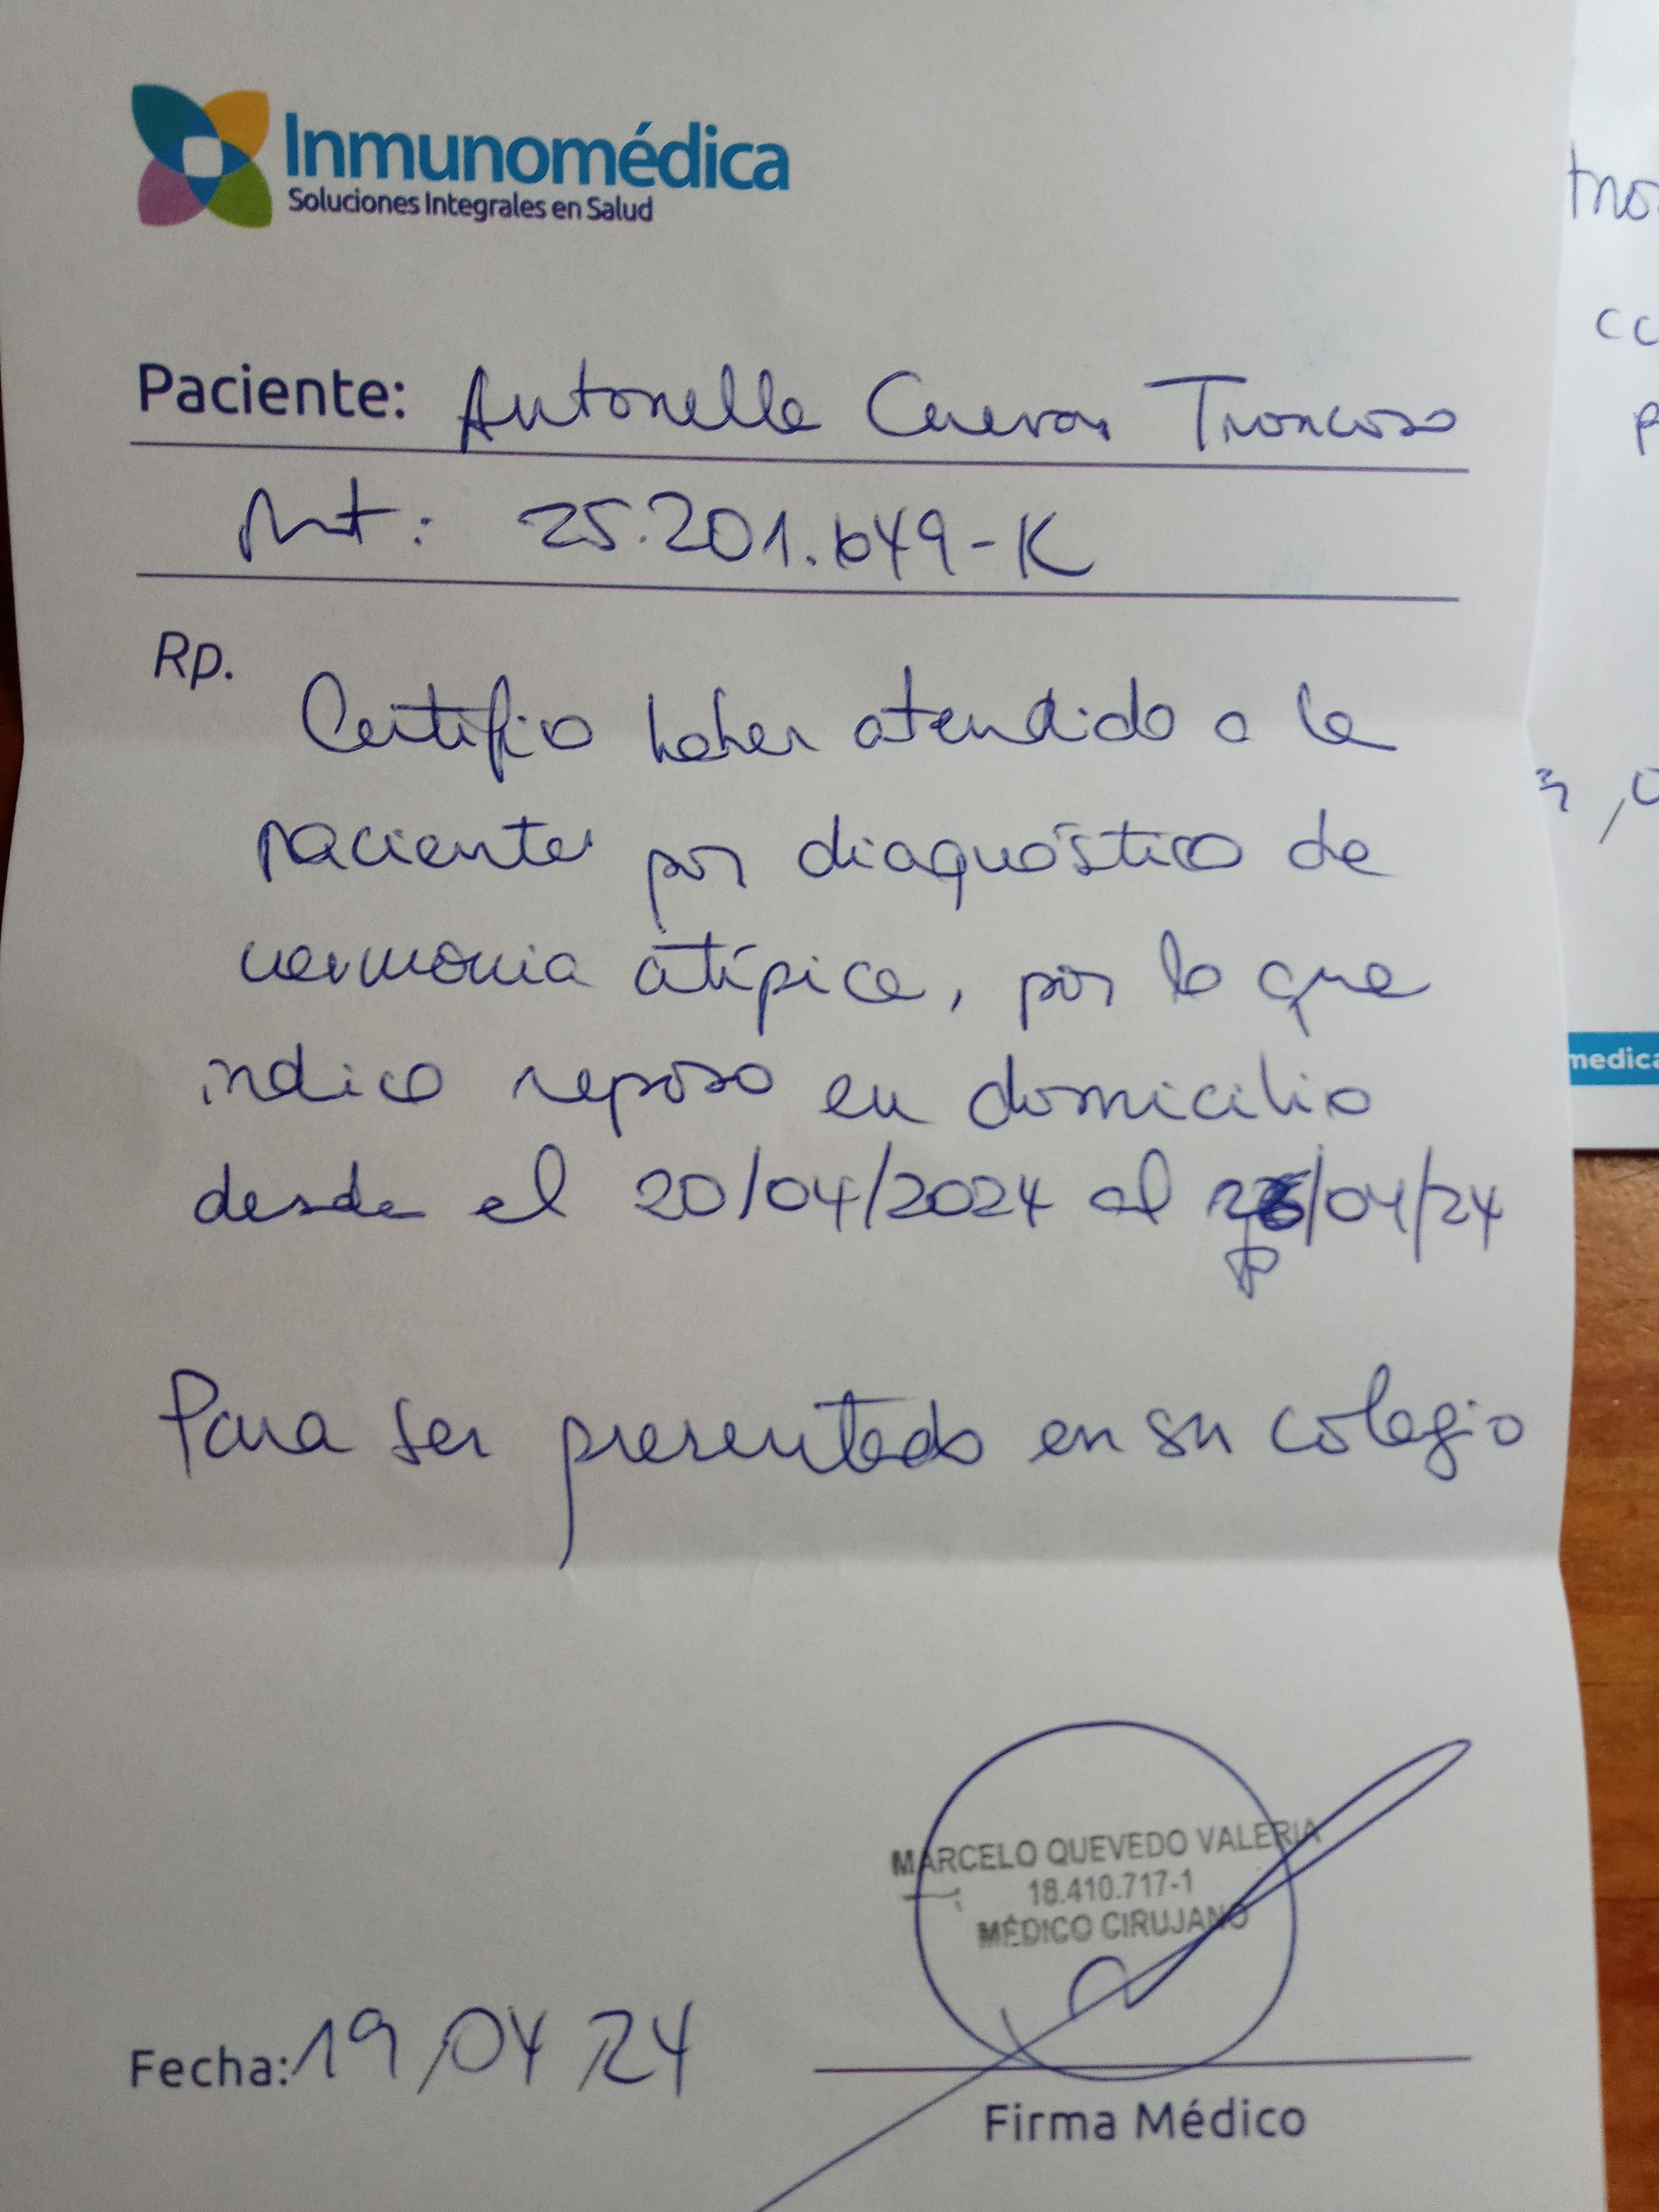 Inmunomédica
Soluciones Integrales en Salud
Paciente: Antonella Cuevas Troncoso
Rut: 25.201.649-K
Rp.
Certifico haber atendido a la
paciente por diagnóstico de
neumonia atípica, por lo que
indico reposo en domicilio
desde el 20/04/2024 al /04/24
Para ser presentado en su colegio
MARCELO QUEVEDO VALERIA
18.410.717-1
MÉDICO CIRUJANO
Fecha: 19/04/24
Firma Médico
medica